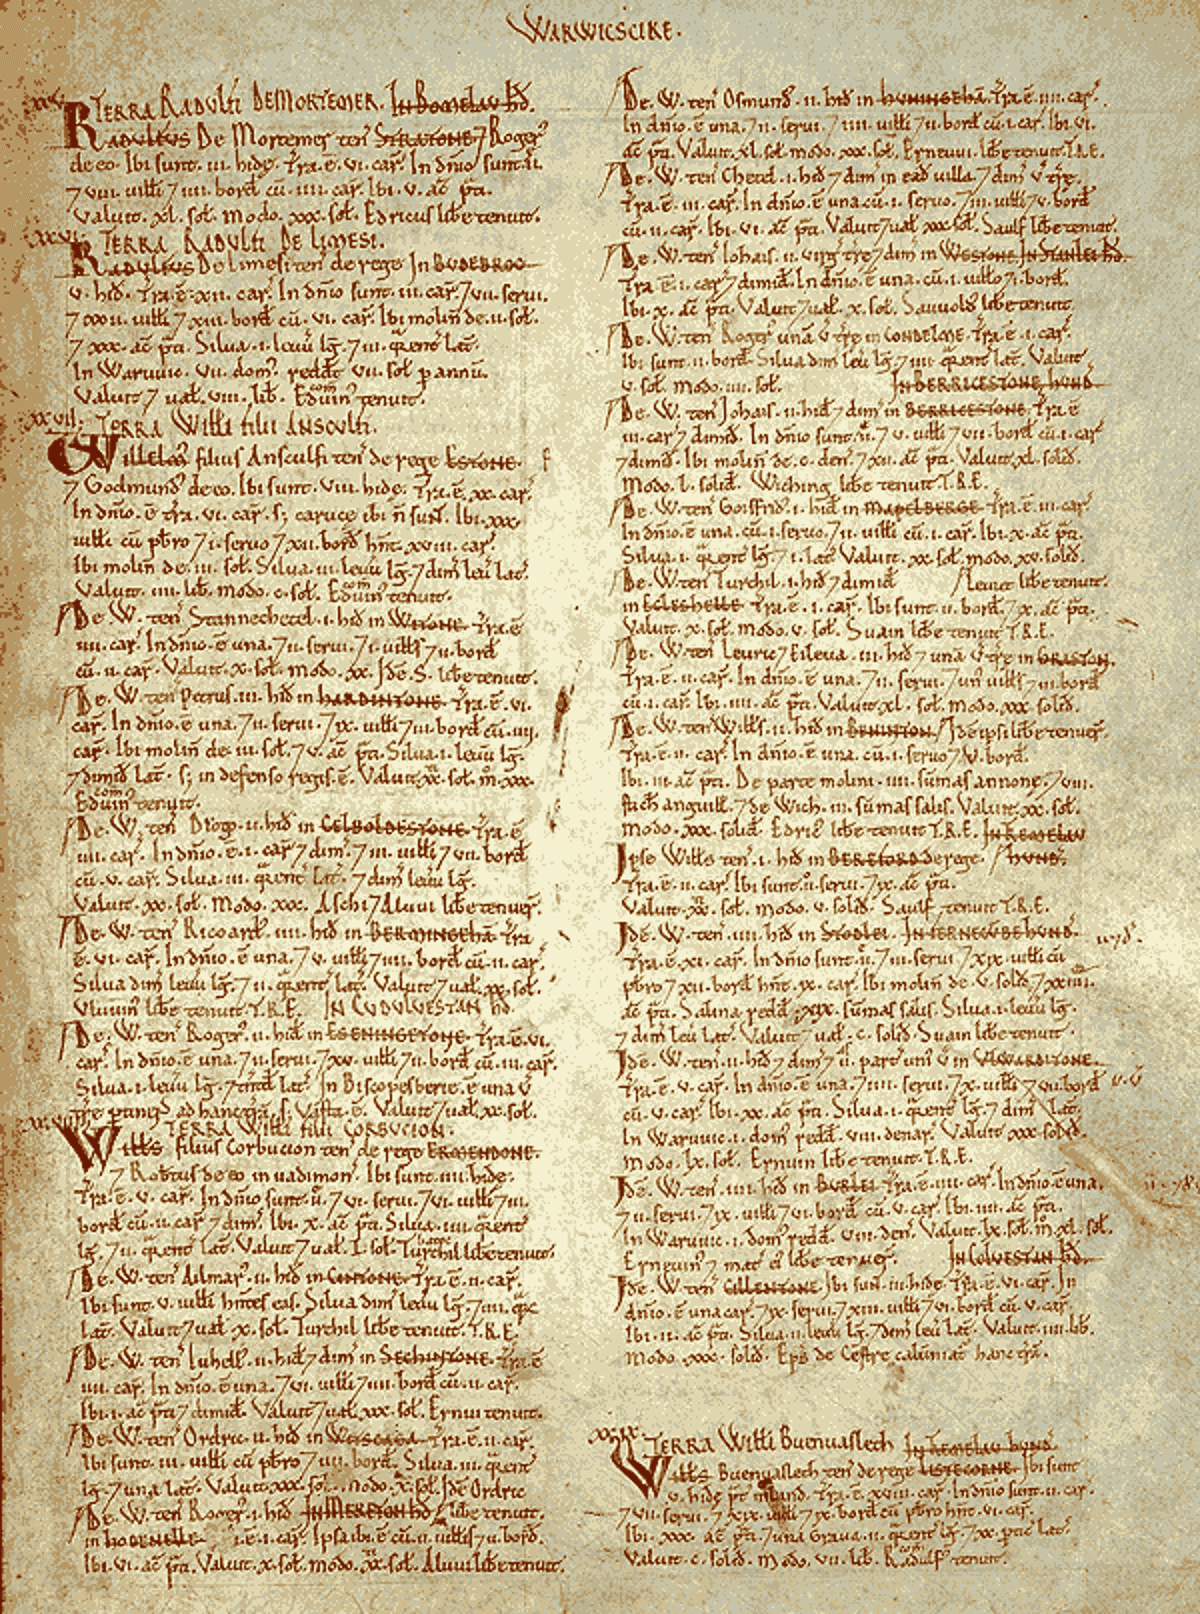 WARWICSCIRE.
XXV. TERRA RADULFI DE MORTEMER. In Bomelau hđ.
RADULFUS De Mortemer ten STRATONE ⁊ Roger9
de eo. Ibi sunt. iii. hidę. Tra. ē. vi. car. In dnio sunt. ii.
⁊ viii. uilli ⁊ iiii. borđ cū. iiii. car. Ibi. v. ac p̃ti.
Valuit. xl. sol. Modo. xxx. sol. Edricus libe tenuit.
XXVI. TERRA RADULFI DE LIMESI.
RADULFUS De Limesi ten de rege In BUDEBROC
v. hiđ. Tra. ē. xii. car. In dnio sunt. iii. car. ⁊ vii. serui.
⁊ xxii. uilli ⁊ xiii. borđ cū. vi. car. Ibi molin de. ii. sol.
⁊ xxx. ac p̃ti. Silua. i. leuu lḡ. ⁊ iii. qrent lat.
In Waruuic. vii. dom9 redđt vii. sol p annū.
Valuit ⁊ ual. viii. lib. Eduin9 com tenuit.
XXVII. TERRA WILLI FILII ANSCULFI.
Willelm9 filius Ansculfi ten de rege ESTONE.
⁊ Godmund9 de eo. Ibi sunt. viii. hidę. Tra. ē. xx. car.
In dnio. ē tra. vi. car. s; carucę ibi ñ sunt. Ibi. xxx.
uilli cū pbro ⁊ i. seruo ⁊ xii. borđ hñt. xviii. car.
Ibi molin de. iii. sol. Silua. iii. leuu lḡ. ⁊ dim leu lat.
Valuit. iiii. lib. modo. c. sol. Eduin9 com tenuit.
De. W. ten Stannechetel. i. hiđ in WITONE. Tra. ē
iiii. car. In dnio. ē una. ⁊ ii. serui. ⁊ i. uills ⁊ ii. borđ
cū. ii. car. Valuit. x. sol. modo. xx. Iđe. S. libe tenuit.
De. W. ten Petrus. iii. hiđ in HARDINTONE. Tra. ē. vi.
car. In dnio. ē una. ⁊ ii. serui. ⁊ ix. uilli ⁊ iii. borđ cū. iiii.
car. Ibi molin de. iii. sol. ⁊ v. ac p̃ti. Silua. i. leuu lḡ.
⁊ dimiđ lat. s; in defenso regis. ē. Valuit. xx. sol. m̊. xxx.
Eduin9 com tenuit.
De. W. ten Drogo. ii. hiđ in CELBOLDESTONE. Tra. ē
iiii. car. In dnio. ē. i. car. ⁊ dim. ⁊ iii. uilli ⁊ vii. borđ
cū. v. car. Silua. iii. qrent lat. ⁊ dim leuu lḡ.
Valuit. xx. sol. Modo. xxx. Aschi ⁊ Aluui libe tenuer.
De. W. ten Ricoard9. iiii. hiđ in BERMINGEHĀ. Tra
ē. vi. car. In dnio. ē una. ⁊ v. uilli ⁊ iiii. borđ cū. ii. car.
Silua dim leuu lḡ. ⁊ ii. qrent lat. Valuit ⁊ ual. xx. sol.
Vluuin9 libe tenuit T.R.E. IN CUDULVESTAN hđ.
De. W. ten Roger9. ii. hiđ in ESENINGETONE. Tra. ē. vi.
car. In dnio. ē una. ⁊ ii. serui. ⁊ xv. uilli ⁊ ii. borđ cū. iii. car.
Silua. i. leuu lḡ. ⁊ tntđ lat. In Biscopesberie. ē una v̄
tre ptinens ad hanc trā. s; Vasta. ē. Valuit ⁊ ual. xx. sol.
XXVIII. TERRA WILLI FILII CORBUCION.
Wills filius Corbucion ten de rege ERMENDONE.
⁊ Robtus de eo in uadimon. Ibi sunt. iiii. hidę.
Tra. ē. v. car. In dnio sunt. ii. ⁊ vi. serui. ⁊ vi. uilli ⁊ iii.
borđ cū. ii. car ⁊ dim. Ibi. x. ac p̃ti. Silua. iiii. qrent
lḡ. ⁊ ii. qrent lat. Valuit ⁊ ual. L. sol. Turchil libe tenuit.
De. W. ten Ailmar9. ii. hiđ in CINTONE. Tra. ē. ii. car.
Ibi sunt. v. uilli hñtes eas. Silua dim leuu lḡ. ⁊ iiii. qrę
lat. Valuit ⁊ ual. x. sol. Turchil libe tenuit. T.R.E.
De. W. ten Luhell9. ii. hiđ ⁊ dim in SECHINTONE. Tra. ē
iiii. car. In dnio. ē una. ⁊ vi. uilli ⁊ iiii. borđ cū. ii. car.
Ibi. i. ac p̃ti ⁊ dimiđ. Valuit ⁊ ual. xxx. sol. Ernui tenuit.
De. W. ten Ordric. ii. hiđ in WITSCAGA. Tra. ē. ii. car.
Ibi sunt. iii. uilli cū pbro ⁊ iiii. borđ. Silua. iii. qrent
lḡ. ⁊ una lat. Valuit. xxx. sol. modo. x. sol. Iđe Ordric
De. W. ten Roger9. i. hiđ In MERETON hđ libe tenuit.
in HODENELLE. Tra. ē. i. car. Ipsa ibi. ē cū. ii. uillis ⁊ ii. borđ.
Ibi. vi. ac p̃ti. Valuit. x. sol. modo. xx. sol. Aluui libe tenuit.
De. W. ten Osmund9. ii. hiđ in HUNINGEHĀ. Tra. ē. iiii. car.
In dnio. ē una. ⁊ ii. serui. ⁊ iiii. uilli ⁊ ii. borđ cū. i. car. Ibi. vi.
ac p̃ti. Valuit. xl. sol. modo. xxx. sol. Ernuui libe tenuit. T.R.E.
De. W. ten Chetel. i. hiđ ⁊ dim in eađ uilla. ⁊ dim v̄ træ.
Tra. ē. iii. car. In dnio. ē una cū. i. seruo. ⁊ iii. uilli ⁊ v. borđ
cū. ii. car. Ibi. vi. ac p̃ti. Valuit ⁊ ual. xxx. sol. Saulf libe tenuit.
De. W. ten Iohais. ii. uirg træ ⁊ dim in WESTONE. IN STANLEI hđ.
Tra. ē. i. car. ⁊ dimiđ. In dnio. ē una. cū. i. uillo ⁊ i. borđ.
Ibi. x. ac p̃ti. Valuit ⁊ ual. x. sol. Sauuold9 libe tenuit.
De. W. ten Roger9 unā v̄ træ in CONDELME. Tra. ē. i. car.
Ibi sunt. ii. borđ. Silua dim leu lḡ. ⁊ iiii. qrent lat. Valuit
v. sol. modo. iiii. sol. IN BERRICESTONE HUND.
De. W. ten Iohais. ii. hiđ ⁊ dim in BERRICESTONE. Tra. ē
iii. car ⁊ dimiđ. In dnio sunt. ii. ⁊ v. uilli ⁊ vii. borđ cū. i. car
⁊ dimiđ. Ibi molin de. c. den. ⁊ xii. ac p̃ti. Valuit. xl. soliđ.
Modo. L. soliđ. Wiching libe tenuit T.R.E.
De. W. ten Goisfriđ. i. hiđ in MAPELBERGE. Tra. ē. iii. car.
In dnio. ē una. cū. i. seruo. ⁊ ii. uilli cū. i. car. Ibi. x. ac p̃ti.
Silua. i. qrent lḡ. ⁊ i. lat. Valuit. xx. sol. modo. xv. soliđ.
De. W. ten Turchil. i. hiđ ⁊ dimiđ Leuric libe tenuit.
in ECLESHELLE. Tra. ē. i. car. Ibi sunt. ii. borđ. ⁊ x. ac p̃ti.
Valuit. x. sol. modo. v. sol. Suain libe tenuit T.R.E.
De. W. ten Leuric ⁊ Eileua. iii. hiđ ⁊ unā v̄ træ in GRASTON.
Tra. ē. ii. car. In dnio. ē una. ⁊ ii. serui. ⁊ un9 uills ⁊ iii. borđ
cū. i. car. Ibi. iiii. ac p̃ti. Valuit. xl. sol. modo. xxx. soliđ.
De. W. ten Wills. ii. hiđ in BENINTON. Iđe ipsi libe tenuer.
Tra. ē. ii. car. In dnio. ē una. cū. i. seruo ⁊ v. borđ.
Ibi. iii. ac p̃ti. De parte molini. iiii. sūmas annonę. ⁊ viii.
stich anguill. ⁊ de Wich. iii. sūmas salis. Valuit. xx. sol.
Modo. xxx. soliđ. Edric9 libe tenuit T.R.E. IN REMELAU HUND.
Ipse Wills ten. i. hiđ in BEREFORD de rege.
Tra. ē. ii. car. Ibi sunt. ii. serui. ⁊ ix. ac p̃ti.
Valuit. xx. sol. modo. v. soliđ. Saulf tenuit T.R.E.
Iđe. W. ten. iiii. hiđ in STODLEI. IN FERNECUBE HUND.
Tra. ē. xi. car. In dnio sunt. ii. ⁊ iii. serui ⁊ xix. uilli cū
pbro ⁊ xii. borđ hñt. ix. car. Ibi molin de. v. soliđ ⁊ xxiiii.
ac p̃ti. Salina redđ. xix. sūmas salis. Silua. i. leuu lḡ.
⁊ dim leu lat. Valuit ⁊ ual. c. soliđ. Suain libe tenuit
Iđe. W. ten. ii. hiđ ⁊ dim ⁊ ii. part uni9 v̄ in VLWARDITONE.
Tra. ē. v. car. In dnio. ē una. ⁊ iiii. serui. ⁊ x. uilli ⁊ vii. borđ
cū. v. car. Ibi. xx. ac p̃ti. Silua. i. qrent lḡ. ⁊ dim lat.
In Waruuic. i. dom9 redđ. viii. denar. Valuit xxx. soliđ.
Modo. lx. sol. Ernuin libe tenuit. T.R.E.
Iđe. W. ten. iiii. hiđ in BURLEI. Tra. ē. iiii. car. In dnio. ē una.
⁊ ii. serui. ⁊ ix. uilli ⁊ vi. borđ cū. v. car. Ibi. iiii. ac p̃ti.
In Waruuic. i. dom9 redđ. viii. den. Valuit. lx. sol. m̊. xl. sol.
Ernuin9 ⁊ mat ei9 libe tenuer. IN COLVESTAN hđ.
Iđe. W. ten CILLENTONE. Ibi sunt. iii. hidę. Tra. ē. vi. car. In
dnio. ē una car. ⁊ ix. serui. ⁊ xiii. uilli ⁊ vi. borđ cū. v. car.
Ibi. ii. ac p̃ti. Silua. ii. leuu lḡ. ⁊ dim leu lat. Valuit. iiii. lib.
Modo. xxx. soliđ. Eps de Cestre calūniat hanc trā.
XXIX. TERRA WILLI BUENVASLECH. IN REMELAU HUND
Wills Buenuaslech ten de rege LISTECORNE. Ibi sunt
v. hidę. Tra. ē. xviii. car. In dnio sunt. ii. car.
⁊ vii. serui. ⁊ xix. uilli ⁊ ix. borđ cū pbro hñt. vi. car.
Ibi. xxx. ac p̃ti. ⁊ una Graua. ii. qrent lḡ. ⁊ xx. ptic lat.
Valuit. c. soliđ. Modo. vii. lib. Radulf9 com tenuit.